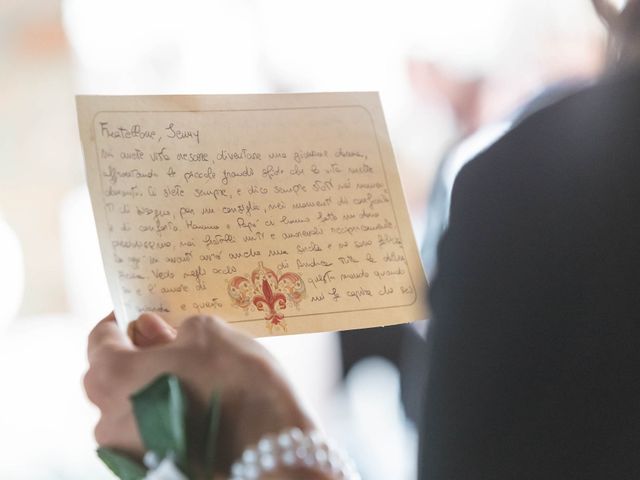 Fratellone, Seury
Mi avete vista crescere, diventare una giovane donna,
affrontando le piccole grandi sfide che la vita mette
davanti. Ci siete sempre, e dico sempre stati nei momenti
di bisogno, per un consiglio, nei momenti di
e di conforto. Mamma e Papà ci hanno fatto un dono
preziosissimo, noi fratelli uniti e
Da oggi in avanti avrò anche una e ne sono felice
Vedo negli occhi di Andrea tutta la
e l'amore di questo mondo quando
e questo mi fa capire che sei